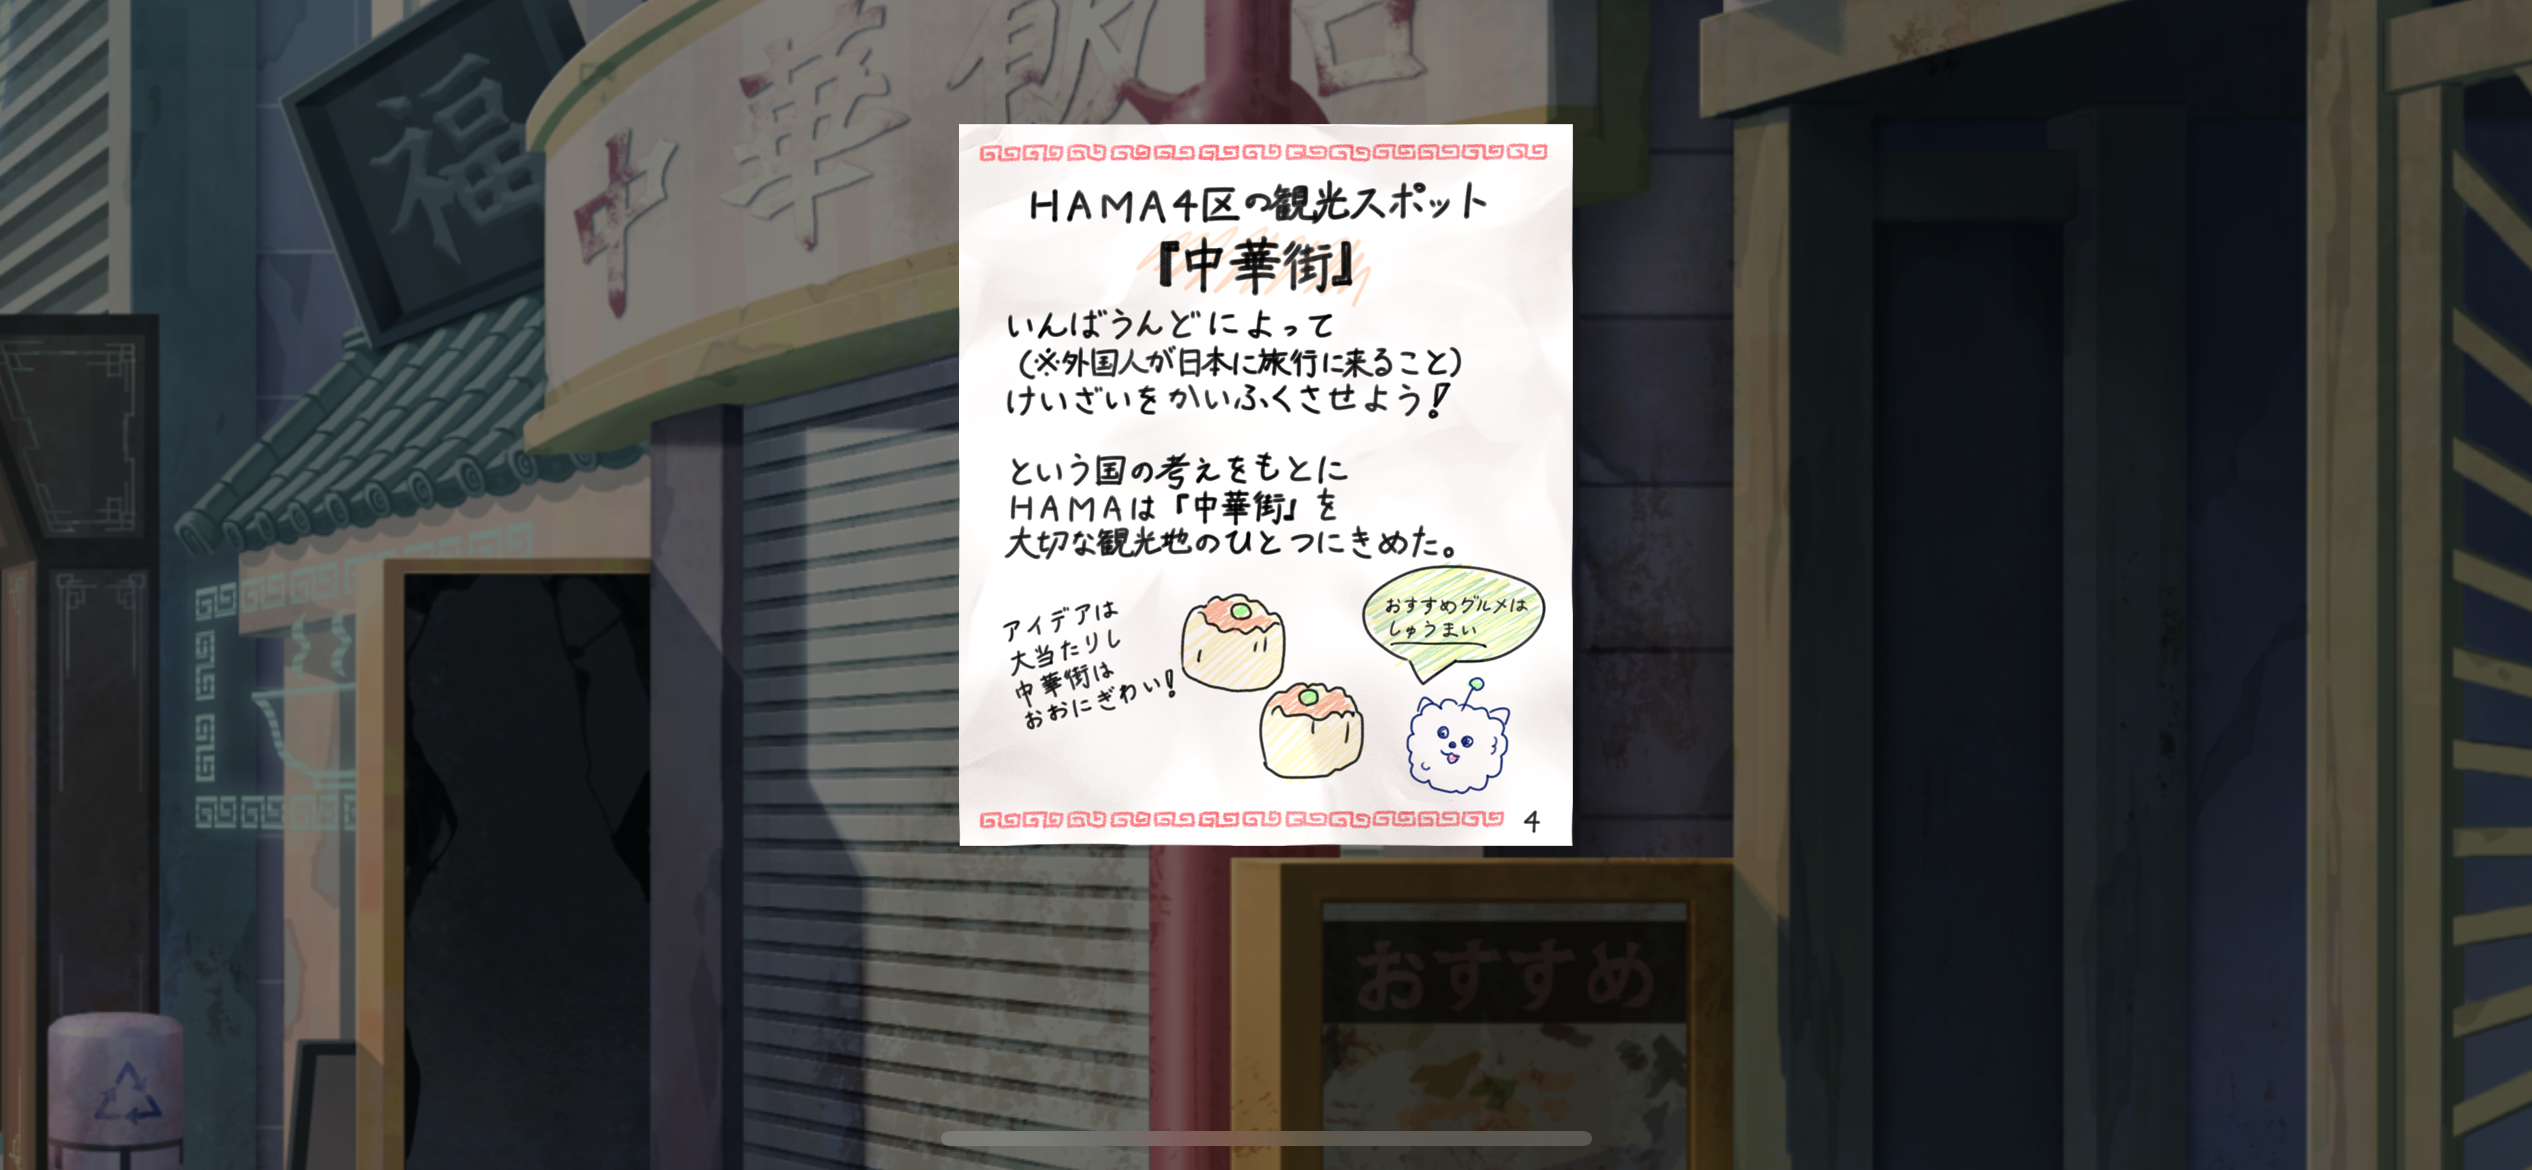 福
中華飯
HAMA4区の観光スポット
『中華街』
いんばうんどによって
(※外国人が日本に旅行に来ること)
けいざいをかいふくさせよう!
という国の考えをもとに
HAMAは『中華街』を
大切な観光地のひとつにきめた。
アイデアは
大当たりし
中華街は
おおにぎわい!
おすすめグルメは
しゅうまい
4
おすすめ